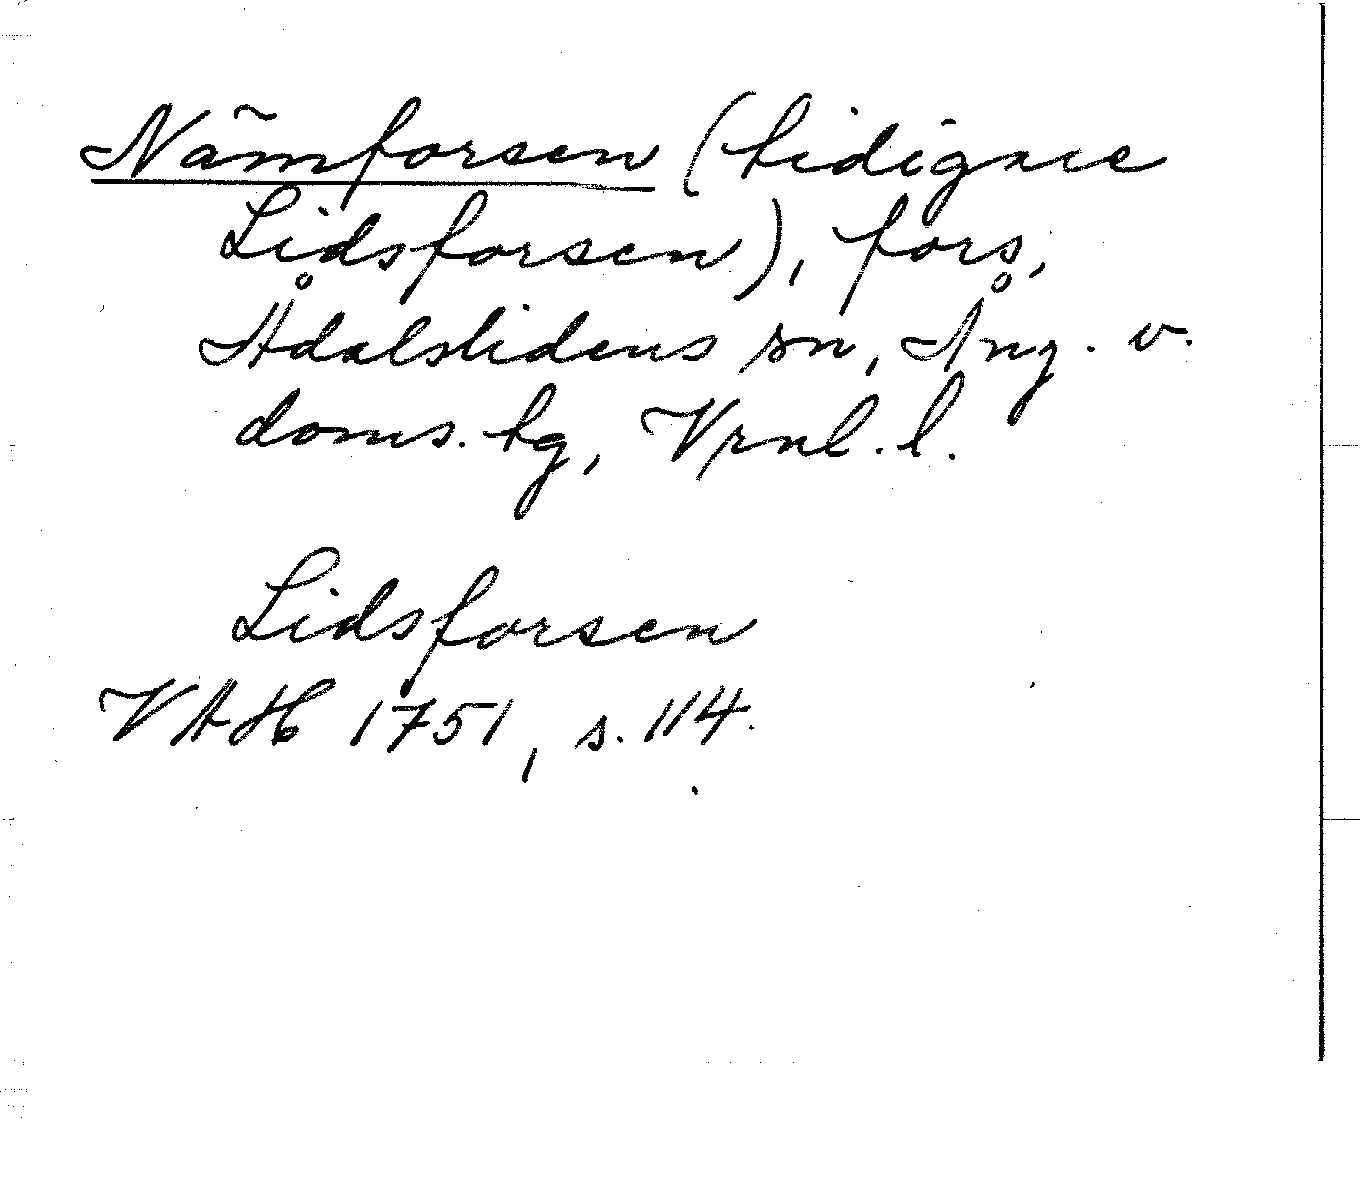 Nämforsen (tidigare
Lidsforsen), fors,
Ådalslidens sn, Ång. v.
doms. hg, Vrnl. l.
Lidsforsen
VAH 1751, s. 114.